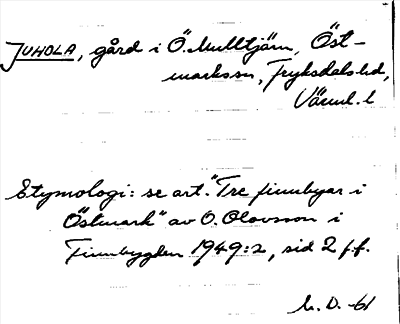 JUHOLA, gård i Ö. Mulltjärn, Öst-
markssn, Fryksdals hd,
Värml. l
Etymologi: se art. "Tre finnbyar i
Östmark" av O. Olovsson i
Finnbygden 1949:2, sid 2 ff.
L. D. -61